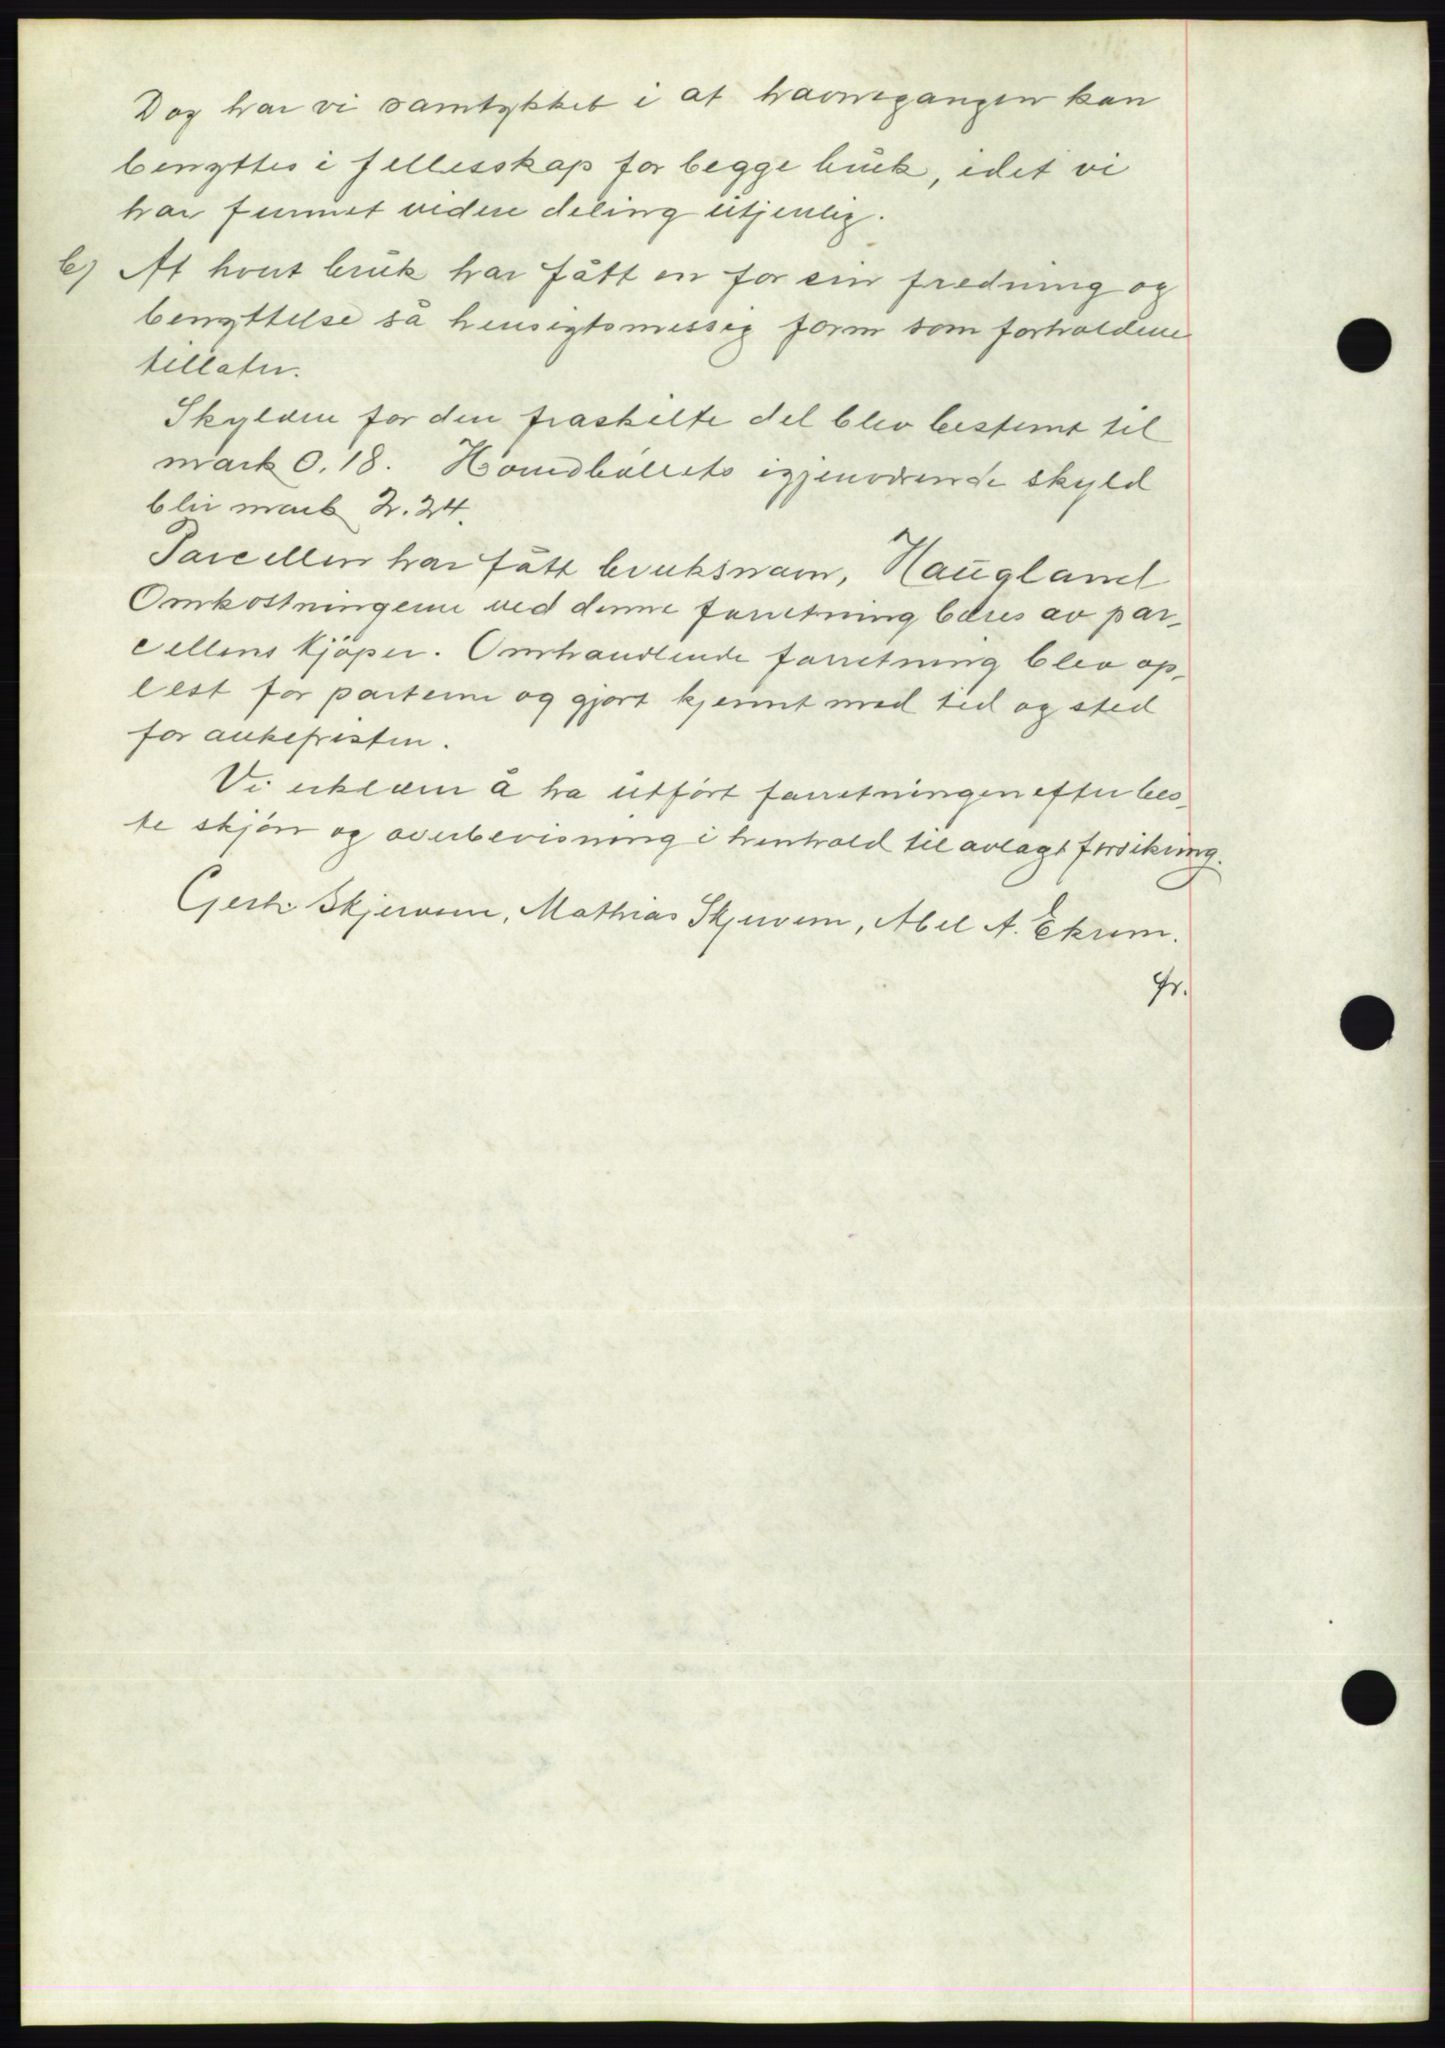 Dog har vi samtykket i at havnegangen kan
benyttes i fellesskap for begge bruk, idet vi
har funnet videre deling utjenlig.
b) At hvert bruk har fått en for sin fredning og
benyttelse så hensigtsmessig form som forholdene
tillater.
Skylden for den fraskilte del blev bestemt til
mark 0.18. Hovedbølets igjenværende skyld
blir mark 2.24.
Parcellen har fått bruksnavn, Haugland
Omkostningene ved denne forretning bæres av par-
cellens kjøper. Omhandlende forretning blev op-
lest for partene og gjort kjennt med tid og sted
for ankefristen.
Vi erklærer å ha utført forretningen efter bes-
te skjønn og overbevisning i henhold til avlagt forsikring.
Gerh. Skjerven, Mathias Skjerven, Abel A. Ekrem.